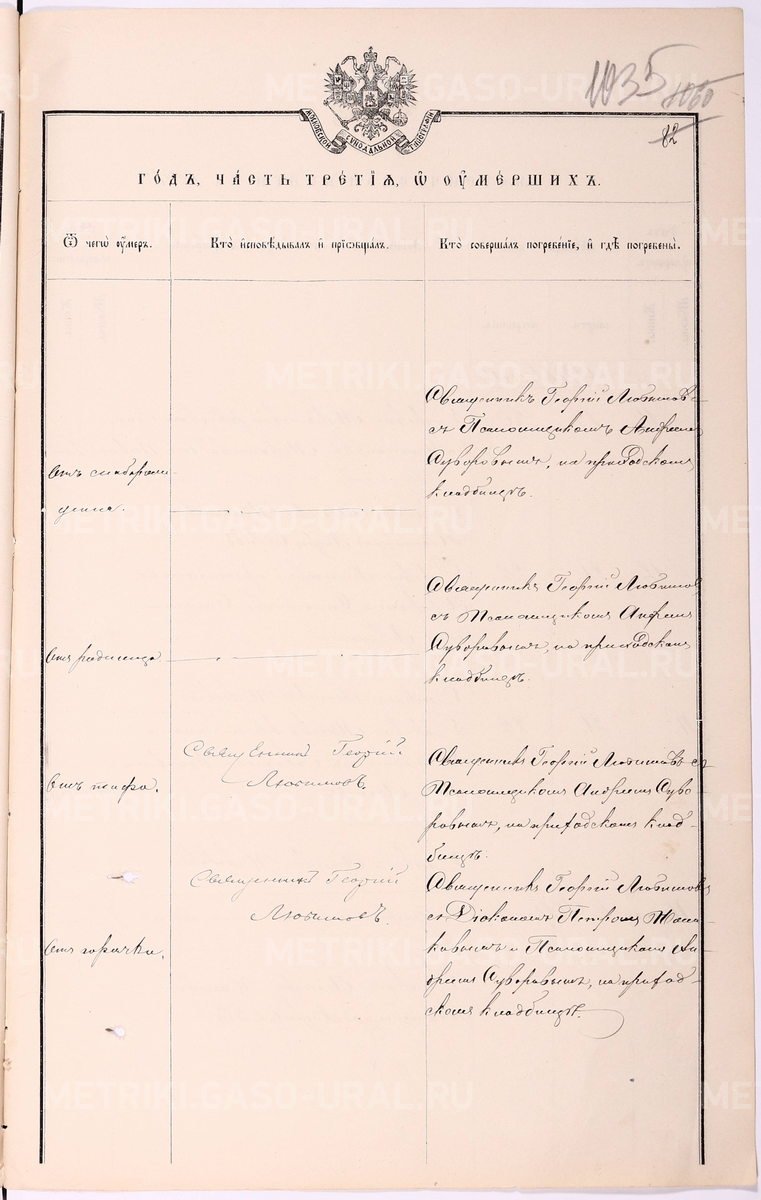 1035
1060
82
МОСКОВСКОЙ СѴНОДАЛЬНОЙ ТИПОГРАФІИ
ГО́ДЪ, ЧА́СТЬ ТРЕ́ТІѦ, Ѡ҆ ОУ҆МЕ́РШИХЪ.
Ѿ чегѡ̀ ᲂу҆́меръ.
Кто̀ и҆сповѣ́дывалъ и҆ прїѡбща́лъ.
Кто̀ соверша́лъ погребе́нїе, и҆ гдѣ̀ погребены̀.
Священникъ Георгій Любимовъ
съ Псаломщикомъ Андреемъ
Суворовымъ, на приходскомъ
кладбищѣ.
Отъ
Священникъ Георгій Любимовъ
съ Псаломщикомъ Андреемъ
Суворовымъ, на приходскомъ
кладбищѣ.
Отъ родимца
Священникъ Георгій
Любимовъ.
Священникъ Георгій Любимовъ съ
Псаломщикомъ Андреемъ Суво-
ровымъ, на приходскомъ клад-
бищѣ.
Отъ тифа.
Священникъ Георгій
Любимовъ.
Священникъ Георгій Любимовъ
съ Діакономъ Петромъ
ковымъ и Псаломщикомъ Ан-
дреемъ Суворовымъ, на приход-
скомъ кладбищѣ.
Отъ горячки.
METRIKI.GASO-URAL.RU